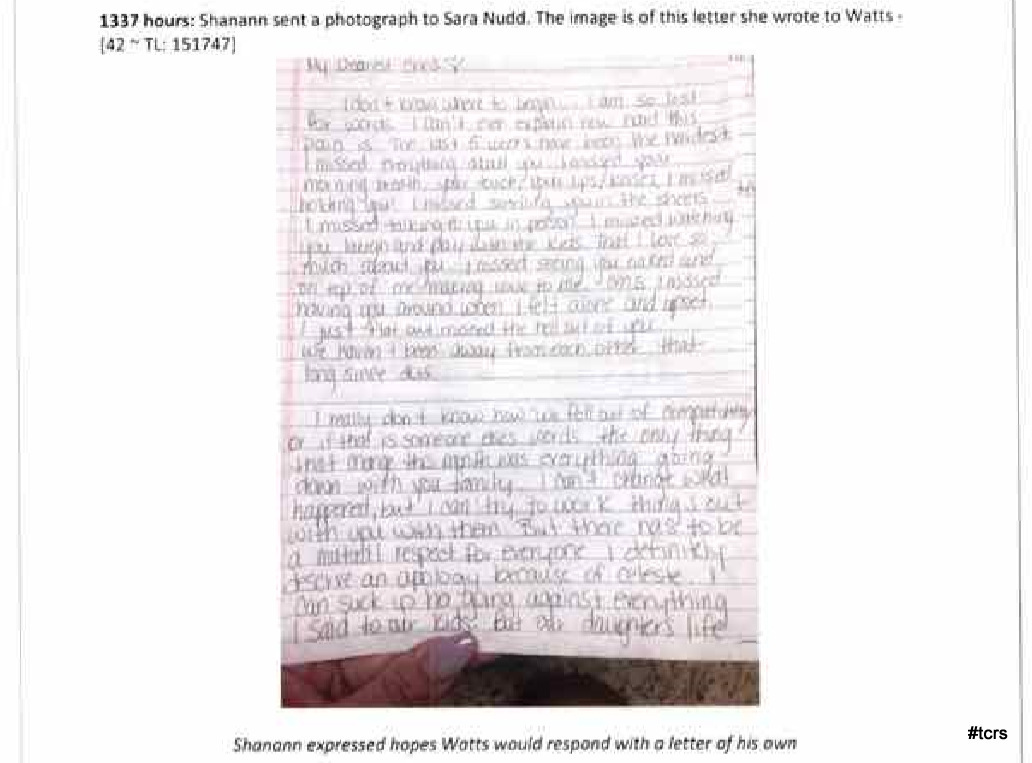 1337 hours: Shanann sent a photograph to Sara Nudd. The image is of this letter she wrote to Watts -
[42 ~ TL: 151747]
My Dearest
I don't know where to begin. I am so lost
for words. I can't ever explain how hard this
pain is. The last 5 weeks have been the hardest
I missed everything about you. I missed your
morning breath, your touch, your lips/kisses, I missed
holding you! I missed you in the sheets
I missed talking to you in person. I missed watching
you laugh and play with the kids that I love so
much about you. I missed seeing you naked and
on top of me making love to me. I missed
having you around when I felt alone and upset
I just flat out missed the hell out of you
we haven't been away from each other that
long since
I really don't know how we fell out of
or if that is someone elses words. the only thing
that change this month was everything going
down with you family. I can't change what
happened, but I can try to work things out
with you with them. But there has to be
a respect for everyone. I definitely
deserve an apology because of celeste. I
can suck up going against everything
I said to our kids. But our daughters life
Shanann expressed hopes Watts would respond with a letter of his own
#tcrs